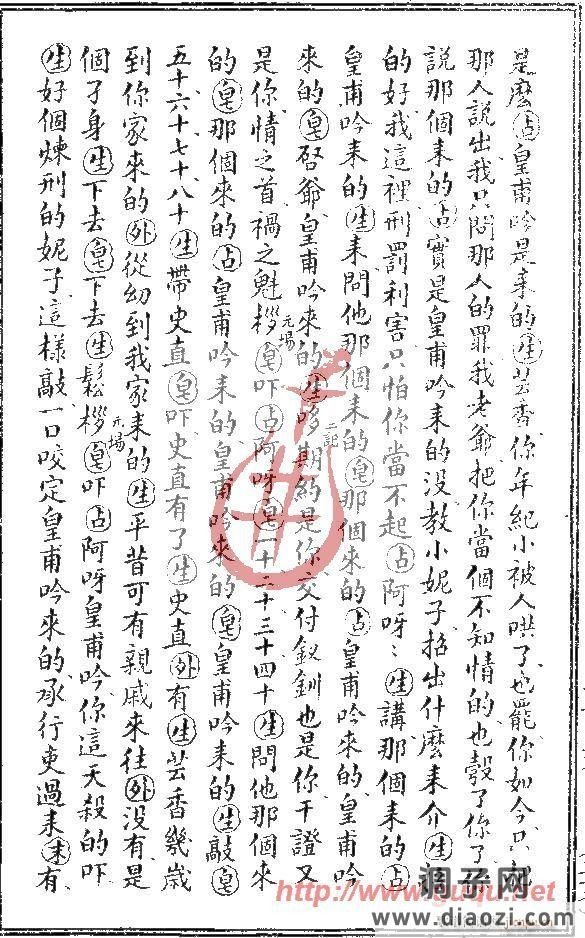 是麽㊀占皇甫吟是来的生芸香你年紀小被人哄了也罷你如今只
那人説出我只問那人的罪我老爺把你當個不知情的也彀了你了
説那個来的占實是皇甫吟来的没教小妮子招出什麽来介生
的好我這裡刑罰利害只怕你當不起占阿呀〻生講那個来的占
皇甫吟来的生来問他那個来的皂那個来的占皇甫吟来的皇甫吟
来的皂啓爺皇甫吟来的生哆期約是你交付釵釧也是你干證又
是你情之首禍之魁桚元場皂吓占阿呀皂一十二十三十四十生問他那個来
的皂那個来的占皇甫吟来的皇甫吟来的皂皇甫吟来的生敲皂
五十六十七十八十生帶史直皂吓史直有了生史直外有生芸香幾歲
到你家来的外從幼到我家来的生平昔可有親戚来往外没有是
個孑身生下去皂下去生鬆桚元場皂吓占阿呀皇甫吟你這天殺的吓
生好個煉刑的妮子這樣敲一口咬定皇甫吟来的承行吏過来末有
http://www.guqu.net
调子网
www.diaozi.com